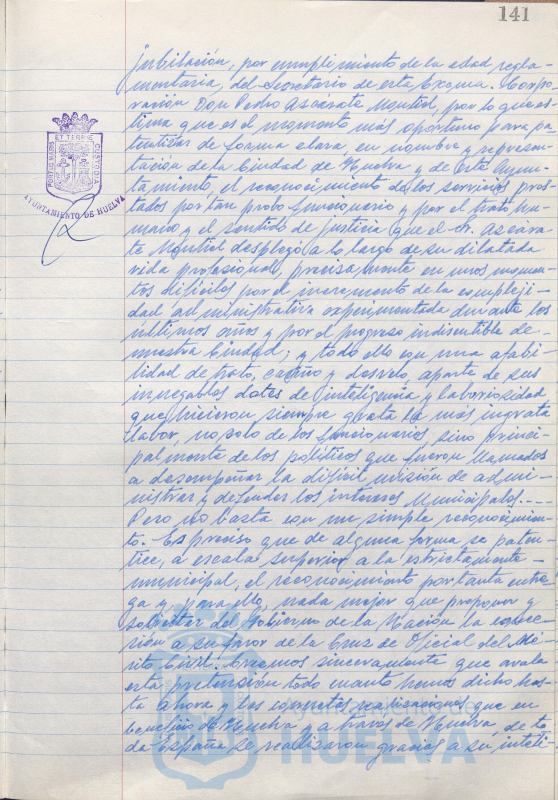 141
jubilación, por cumplimiento de la edad regla-
mentaria, del Secretario de esta Excma. Corpo-
ración Don Pedro Ascárate Montiel, por lo que es-
tima que es el momento más oportuno para pa-
tentizar de forma clara, en nombre y represen-
tación de la Ciudad de Huelva y de este Ayun-
tamiento, el reconocimiento de los servicios pres-
tados por tan probo funcionario y por el trato hu-
mano y el sentido de justicia que el Sr. Ascárate
Montiel desplegó a lo largo de su dilatada
vida profesional, precisamente en unos momen-
tos difíciles por el incremento de la compleji-
dad administrativa experimentada durante los
últimos años y por el progreso indiscutible de
nuestra Ciudad; y todo ello con una afabi-
lidad de trato, cariño y desvelo, aparte de sus
innegables dotes de inteligencia y laboriosidad
que hicieron siempre grata la más ingrata
labor, no solo de los funcionarios, sino princi-
palmente de los políticos que fueron llamados
a desempeñar la difícil misión de admi-
nistrar y defender los intereses Municipales.---
Pero no basta con un simple reconocimien-
to. Es preciso que de alguna forma se paten-
tice, a escala superior a la estrictamente
municipal, el reconocimiento por tanta entre-
ga y para ello, nada mejor que proponer y
solicitar del Gobierno de la Nación la conce-
sión a su favor de la Cruz de Oficial del Mé-
rito Civil. Creemos sinceramente que avala
esta pretensión todo cuanto hemos dicho has-
ta ahora y las concretas realizaciones que en
beneficio de Huelva y a través de Huelva, de to-
da España se realizaron gracias a su inteli-
PORTUS MARIS
ET TERRAE
CUSTODIA
AYUNTAMIENTO DE HUELVA
HUELVA